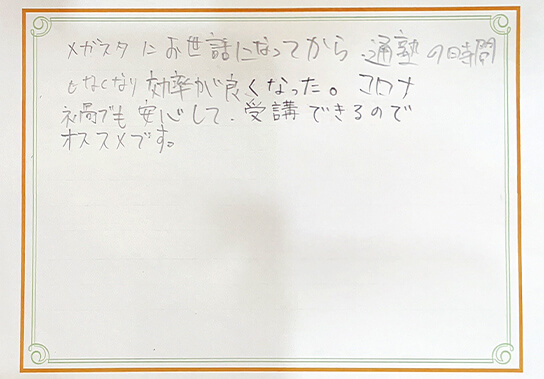 メガスタにお世話になってから通塾の時間
もなくなり効率が良くなった。コロナ
禍でも安心して、受講できるので
オススメです。